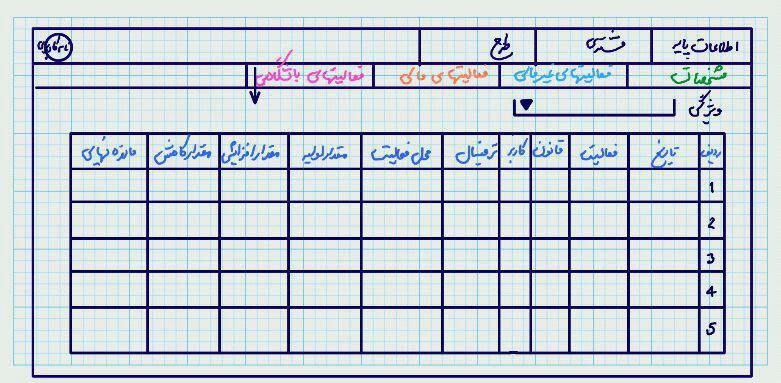 اطلاعات پایه مشتری طرح
مشخصات فعالیتهای غیرمالی فعالیتهای مالی فعالیتهای باشگاهی
ویژگی
ردیف تاریخ فعالیت قانون کاربر ترمینال محل فعالیت مقدار اولیه مقدار افزایش مقدار کاهش مانده نهایی
1
2
3
4
5